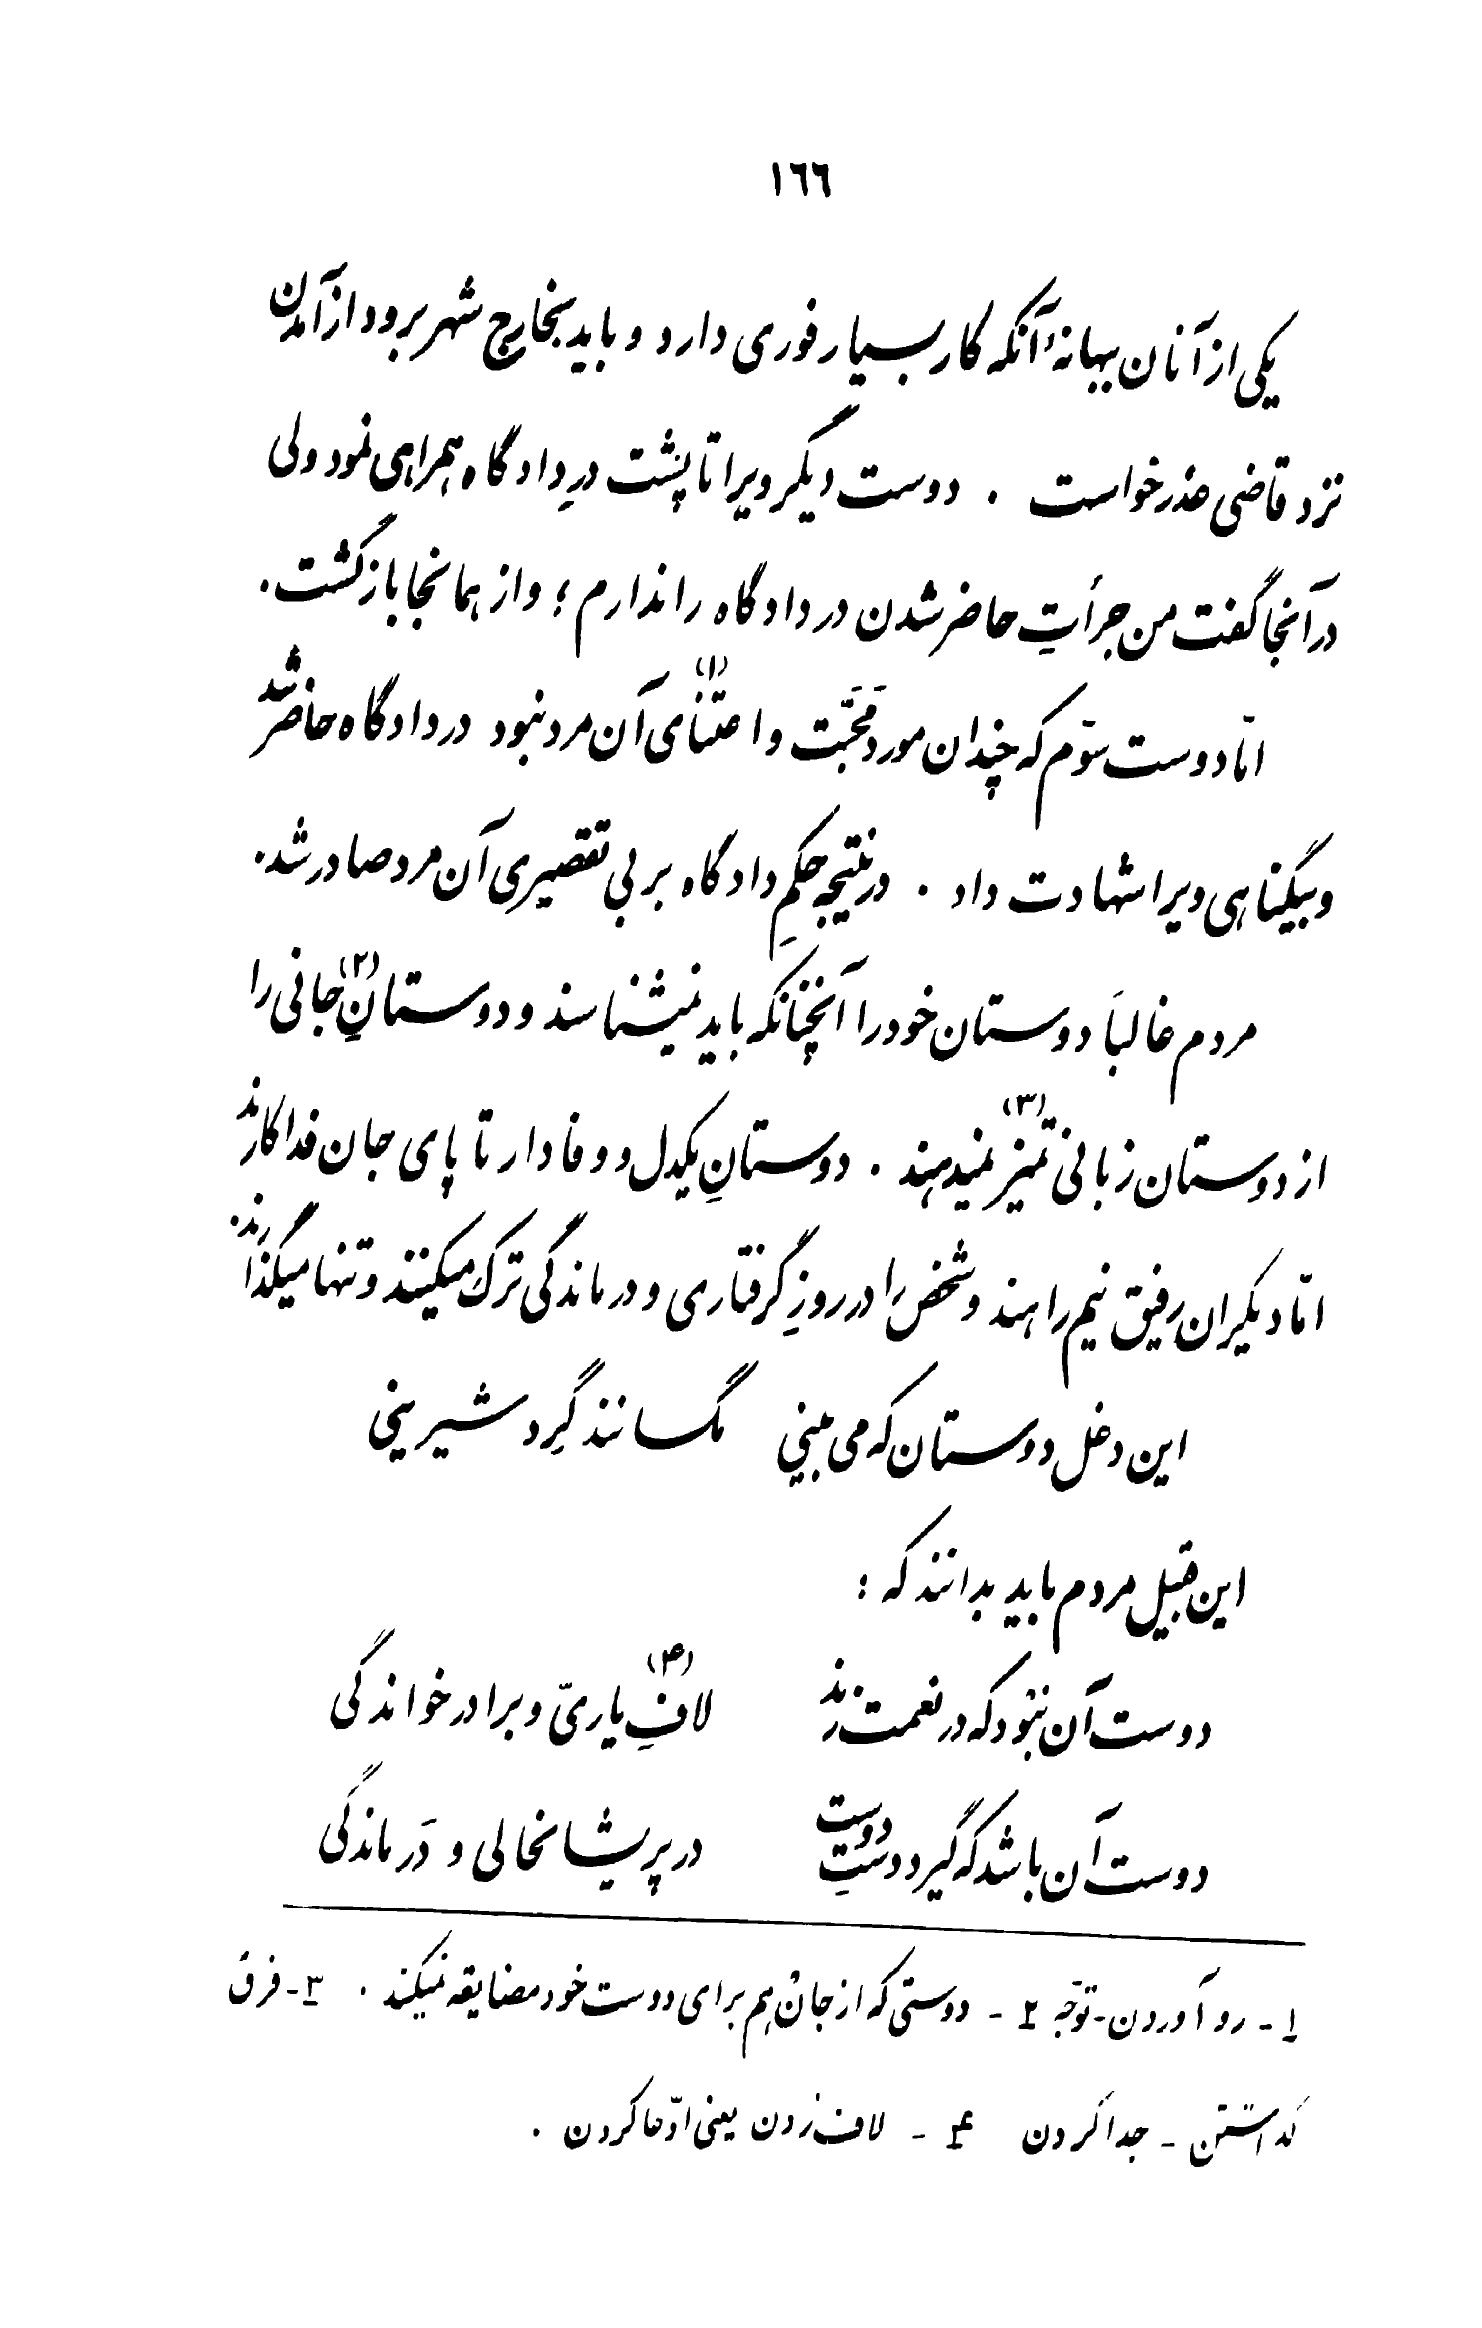 ١٦٦
یکی از آنان ببهانهٔ آنکه کار بسیار فوری دارد و باید بخارج شهر برود از آمدن
نزد قاضی عذر خواست . دوست دیگر ویرا تا پشت درِ دادگاه همراهی نمود ولی
در آنجا گفت من جرأتِ حاضر شدن در دادگاه را ندارم ؛ و از همانجا بازگشت .
امّا دوست سوّم که چندان مورد مَحَبّت و اعتنای (۱) آن مرد نبود در دادگاه حاضر شد
و بیگناهی ویرا شهادت داد . در نتیجه حکمِ دادگاه بر بی تقصیری آن مرد صادر شد .
مردم غالباً دوستان خود را آنچنانکه باید نمیشناسند و دوستانِ جانی (۲) را
از دوستان زبانی تمیز (۳) نمیدهند . دوستانِ یکدل و وفادار تا پای جان فداکارند
امّا دیگران رفیق نیم راهند و شخص را در روزِ گرفتاری و درماندگی ترک میکنند و تنها میگذارند .
این دغل دوستان که می بینی مگسانند گِرد شیرینی
این قبیل مردم باید بدانند که :
دوست آن نبود که در نعمت زند لافِ (۴) یاریّ و برادر خواندگی
دوست آن باشد که گیرد دستِ دوست در پریشانحالی و دَرماندگی
۱ - رو آوردن - توجّه ۲ - دوستی که از جان هم برای دوست خود مضایقه نمیکند . ۳ - فرق
گذاشتن - جدا کردن ۴ - لاف زدن یعنی ادّعا کردن .